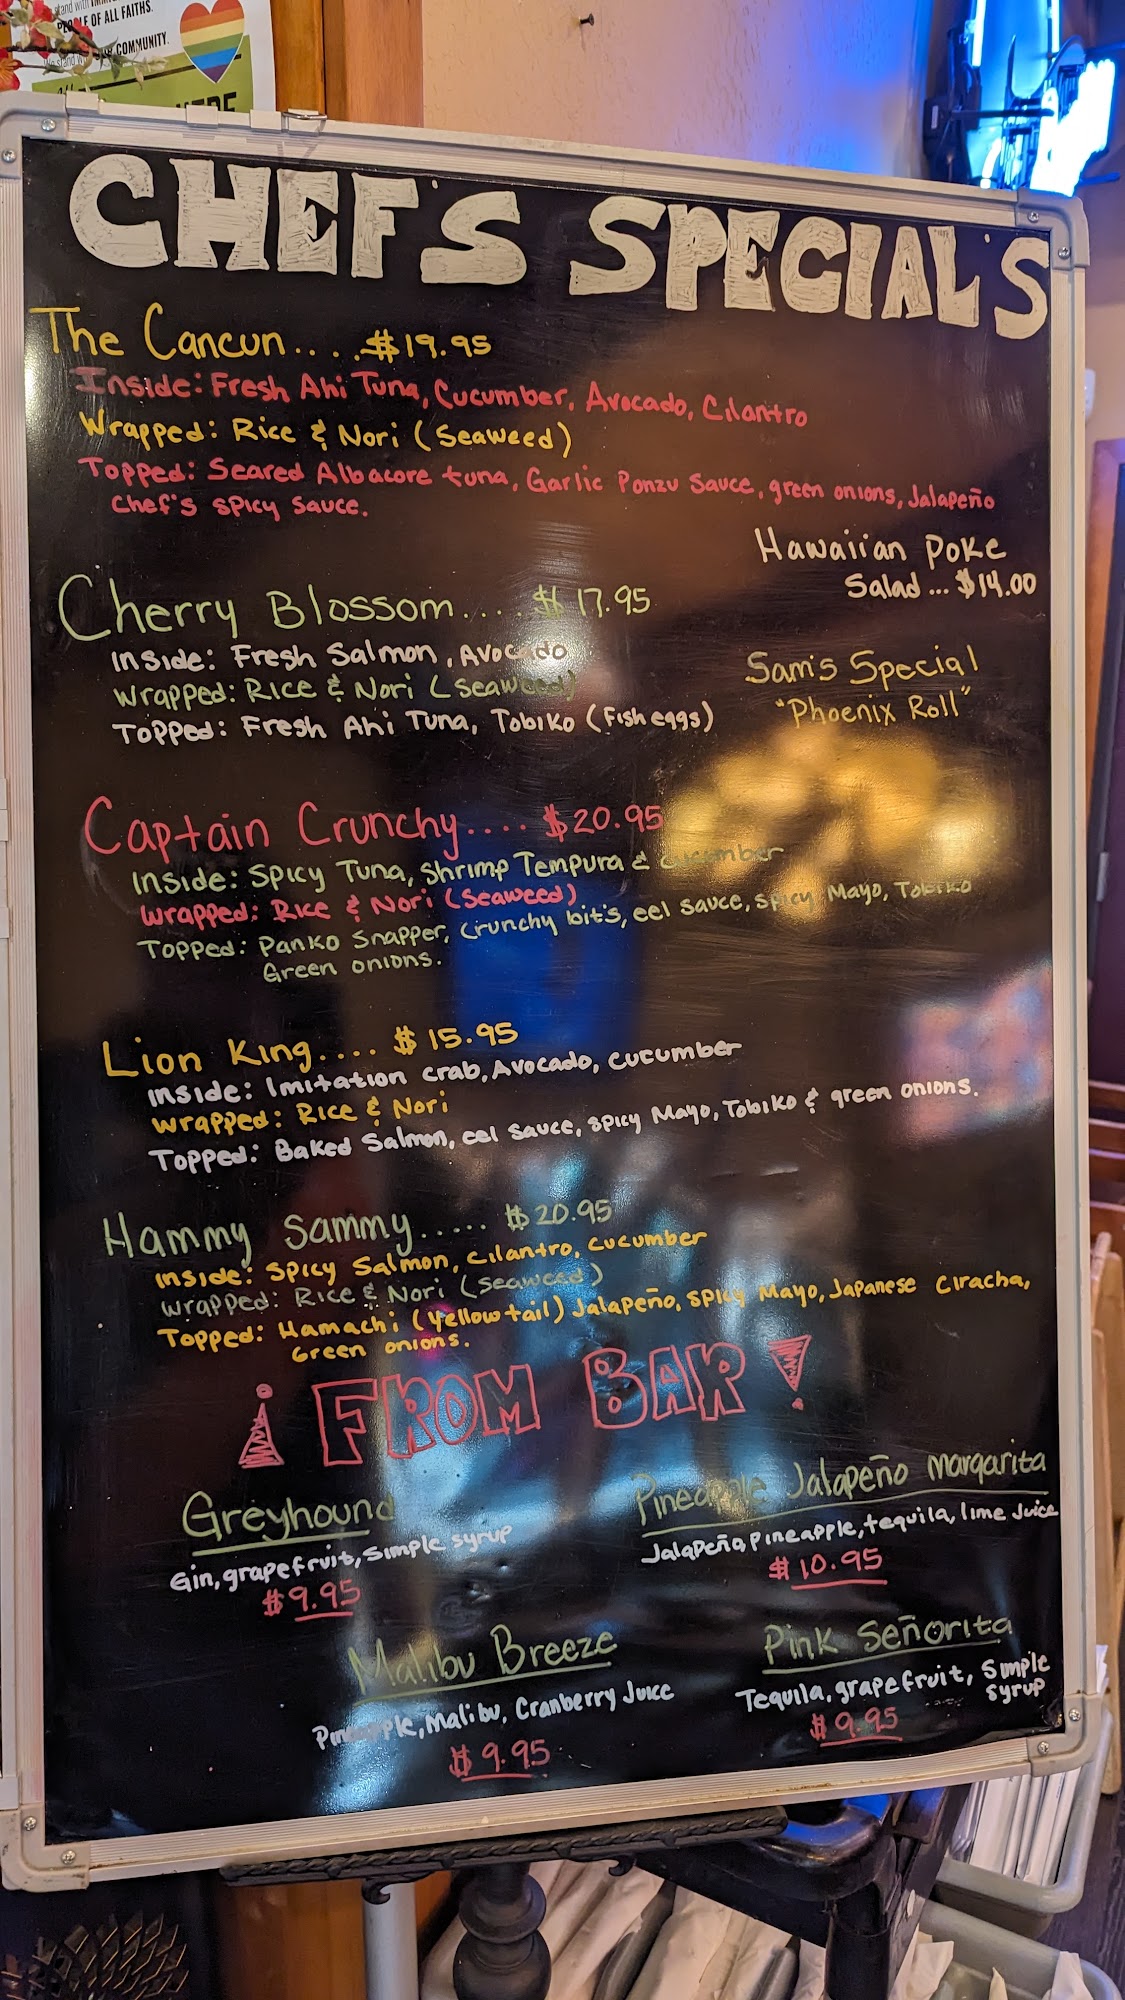 PEOPLE OF ALL FAITHS.
COMMUNITY.
CHEF'S SPECIAL'S
The Cancun.... $19.95
Inside: Fresh Ahi Tuna, Cucumber, Avocado, Cilantro
Wrapped: Rice & Nori (Seaweed)
Topped: Seared Albacore tuna, Garlic Ponzu Sauce, green onions, Jalapeño
Chef's spicy Sauce.
Hawaiian Poke
Salad... $14.00
Cherry Blossom.... $17.95
Inside: Fresh Salmon, Avocado
Wrapped: Rice & Nori (Seaweed)
Topped: Fresh Ahi Tuna, Tobiko (Fish eggs)
Sam's Special
"Phoenix Roll"
Captain Crunchy.... $20.95
Inside: Spicy Tuna, Shrimp Tempura & cucumber
Wrapped: Rice & Nori (Seaweed)
Topped: Panko Snapper, Crunchy bit's, eel sauce, spicy Mayo, Tobiko
Green onions.
Lion King.... $15.95
Inside: Imitation crab, Avocado, cucumber
Wrapped: Rice & Nori
Topped: Baked Salmon, eel sauce, spicy Mayo, Tobiko & green onions.
Hammy Sammy..... $20.95
Inside: Spicy Salmon, cilantro, cucumber
Wrapped: Rice & Nori (seaweed)
Topped: Hamachi (yellowtail) Jalapeño, spicy Mayo, Japanese Ciracha,
Green onions.
¡ FROM BAR !
Greyhound
Gin, grapefruit, simple syrup
$9.95
Pineapple Jalapeño Margarita
Jalapeño, pineapple, tequila, lime Juice
$10.95
Malibu Breeze
Pineapple, Malibu, Cranberry Juice
$9.95
Pink Señorita
Tequila, grapefruit, simple
syrup
$9.95